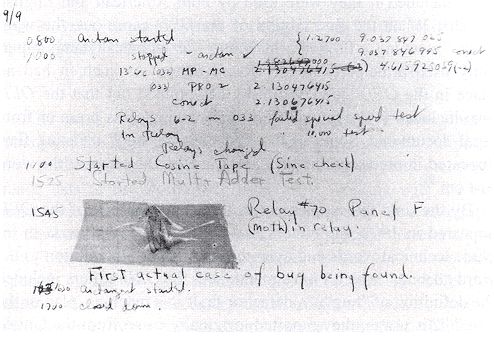 9/9
0800 Antan started { 1.2700 9.037 847 025
1000 " stopped - antan ✓ 9.037 846 995 correct
13" MP-MC 2.130476415 4.615925059(-2)
(033) PRO 2 2.130476415
correct 2.130676415
Relays 6-2 in 033 failed special speed test
In Relay " 10,000 test.
Relays changed
1100 Started Cosine Tape (Sine check)
1525 Started Mult+Adder Test.
1545 Relay #70 Panel F
(moth) in relay.
First actual case of bug being found.
antangent started.
1700 closed down.